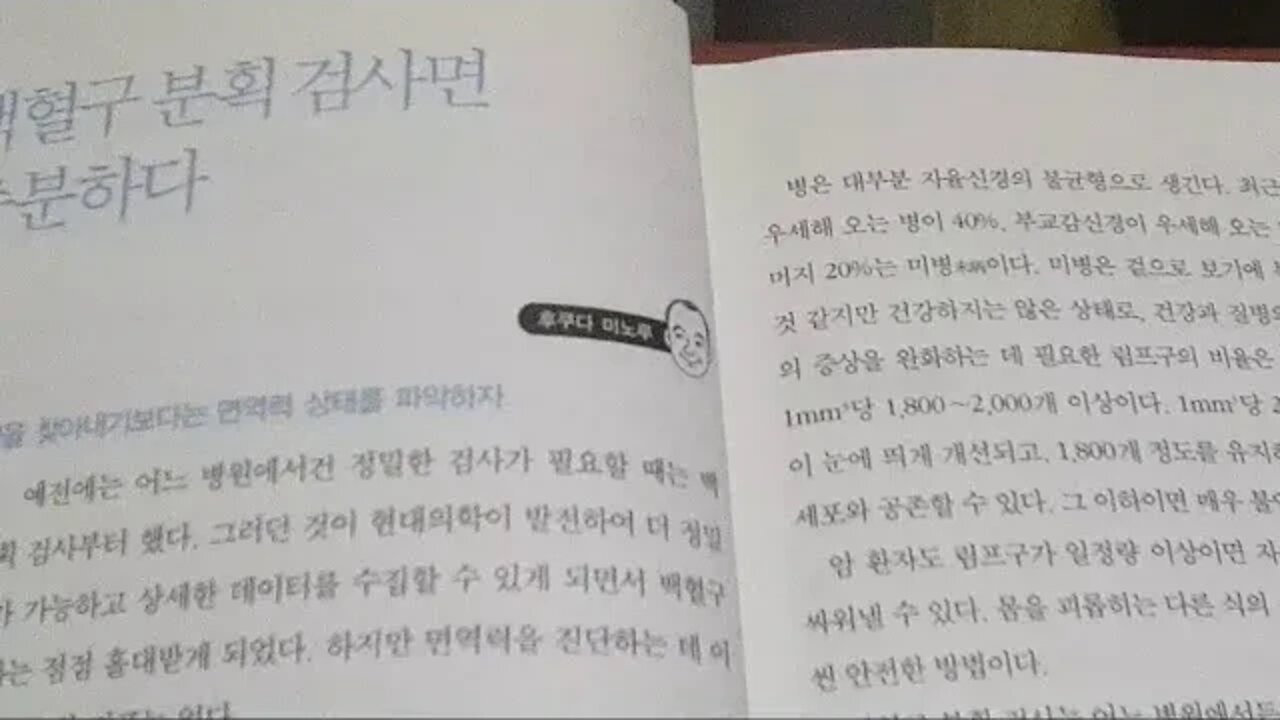 백혈구 분획 검사면
충분하다
후쿠다 미노루
을 찾아내기보다는 면역력 상태를 파악하자
예전에는 어느 병원에서건 정밀한 검사가 필요할 때는 백
획 검사부터 했다. 그러던 것이 현대의학이 발전하여 더 정밀
가 가능하고 상세한 데이터를 수집할 수 있게 되면서 백혈구
는 점점 홀대받게 되었다. 하지만 면역력을 진단하는 데 이
없다
병은 대부분 자율신경의 불균형으로 생긴다. 최근
우세해 오는 병이 40%, 부교감신경이 우세해 오는
머지 20%는 미병未病이다. 미병은 겉으로 보기에
것 같지만 건강하지는 않은 상태로, 건강과 질병의
의 증상을 완화하는 데 필요한 림프구의 비율은
1mm³당 1,800～2,000개 이상이다. 1mm³당 2
이 눈에 띄게 개선되고, 1,800개 정도를 유지하
세포와 공존할 수 있다. 그 이하이면 매우 불
암 환자도 림프구가 일정량 이상이면 자
싸워낼 수 있다. 몸을 괴롭히는 다른 식의
씬 안전한 방법이다.
분획 검사는 어느 병원에서든